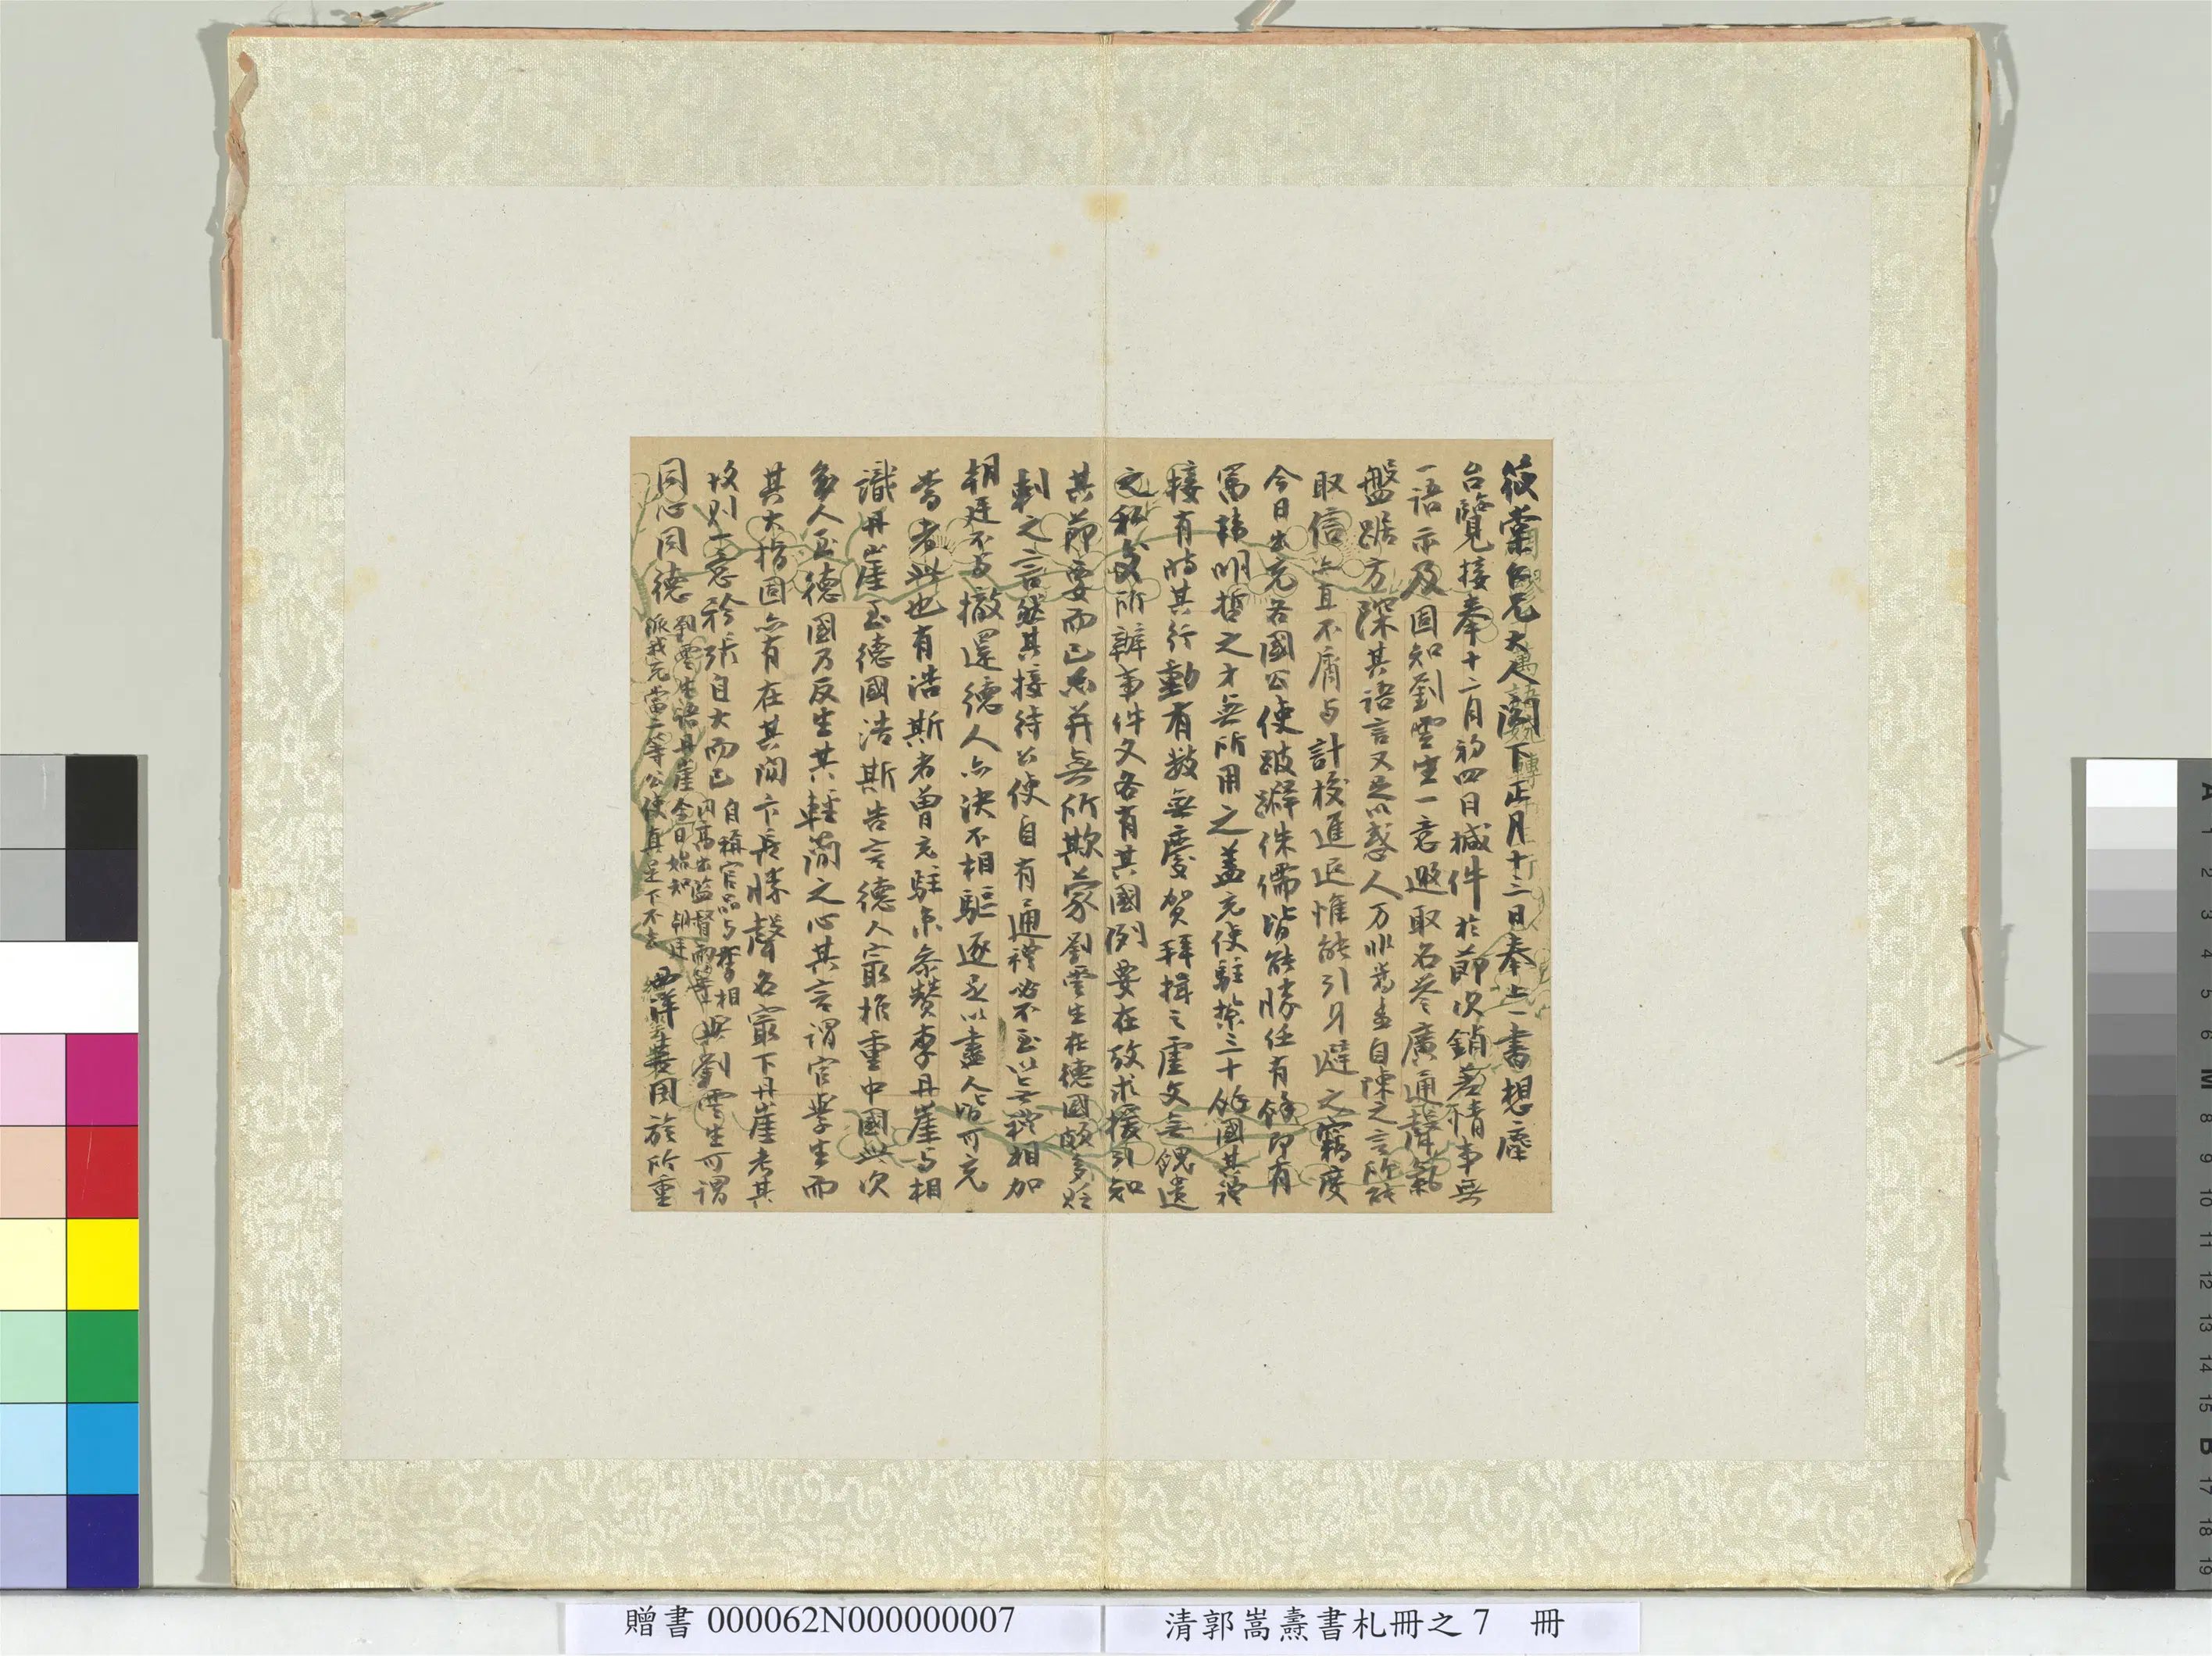 筱棠仁兄大人閣下正月十三日奉上一書想塵
台覽接奉十二月初四日椷件於節次銷差情事無
一語示及固知劉雲生一意邀取名譽廣通聲氣
盤踞方深其語言又足以惑人万非嵩燾自陳之言所能
取信亦且不屑与計較進退惟能引身避之竊度
今日出充各國公使跛躃侏儒皆能勝任有餘即有
富韓明哲之才無所用之蓋充使駐紮三十餘國其禮
接有時其行動有數無慶賀拜揖之虛文無餽遺
之私交所辦事件又各有其國例要在攷求援引知
其節要而已亦并無所欺蒙劉雲生在德國頗多貶
刺之言然其接待公使自有通禮必不至以無禮相加
朝廷不与撤還德人亦決不相驅逐足以盡人皆可充
當者此也有浩斯者曾充駐京參贊李丹崖与相
識丹崖至德國浩斯告言德人最推重中國此次
多人至德國乃反生其輕簡之心其言謂官學生而
其大指固亦有在其閒卞長勝聲名最下丹崖考其
技則一意矜張自大而已
自稱官品与李相
同高出監督兩等
與劉雲生可謂
同心同德
劉雲生語丹崖今日始知朝廷
派我充當二等公使真是下不去
西洋
國旅所重